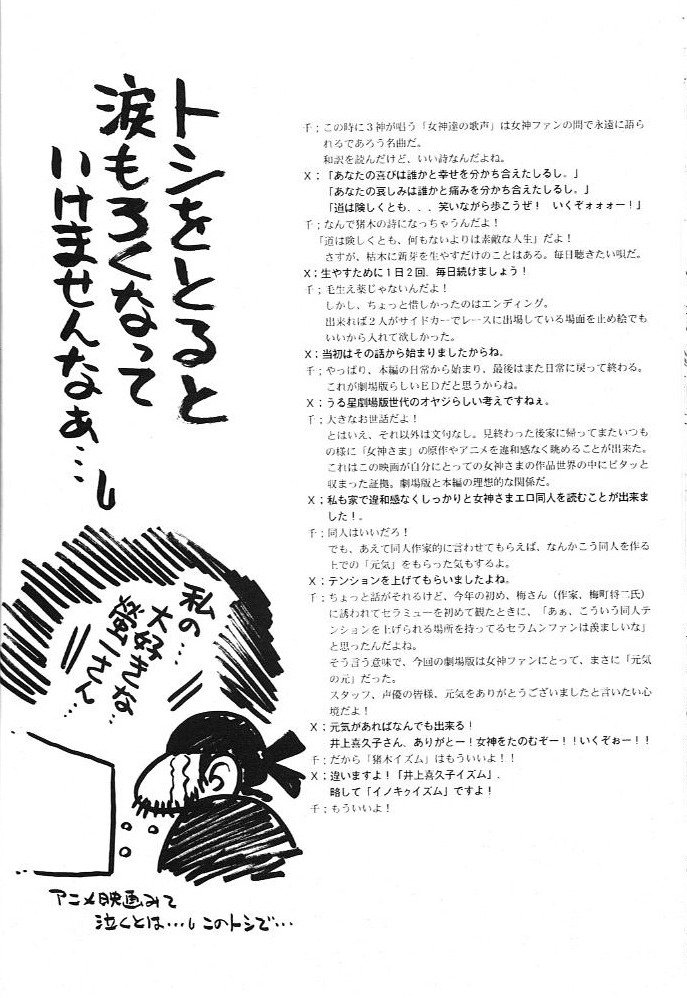 トシをとると
涙もろくなって
いけませんなぁ…
千；この時に３神が唱う「女神達の歌声」は女神ファンの間で永遠に語ら
れるであろう名曲だ。
和訳を読んだけど、いい詩なんだよね。
Ｘ：「あなたの喜びは誰かと幸せを分かち合えたしるし。」
「あなたの哀しみは誰かと痛みを分かち合えたしるし。」
「道は険しくとも、、、笑いながら歩こうぜ！　いくぞォォォー！」
千；なんで猪木の詩になっちゃうんだよ！
「道は険しくとも、何もないよりは素敵な人生」だよ！
さすが、枯木に新芽を生やすだけのことはある。毎日聴きたい唄だ。
Ｘ；生やすために１日２回、毎日続けましょう！
千；毛生え薬じゃないんだよ！
しかし、ちょっと惜しかったのはエンディング。
出来れば２人がサイドカーでレースに出場している場面を止め絵でも
いいから入れて欲しかった。
Ｘ；当初はその話から始まりましたからね。
千；やっぱり、本編の日常から始まり、最後はまた日常に戻って終わる。
これが劇場版らしいＥＤだと思うからね。
Ｘ；うる星劇場版世代のオヤジらしい考えですねぇ。
千；大きなお世話だよ！
とはいえ、それ以外は文句なし。見終わった後家に帰ってまたいつも
の様に「女神さま」の原作やアニメを違和感なく眺めることが出来た。
これはこの映画が自分にとっての女神さまの作品世界の中にピタッと
収まった証拠。劇場版と本編の理想的な関係だ。
Ｘ；私も家で違和感なくしっかりと女神さまエロ同人を読むことが出来ま
した！。
千；同人はいいだろ！
でも、あえて同人作家的に言わせてもらえば、なんかこう同人を作る
上での「元気」をもらった気もするよ。
Ｘ；テンションを上げてもらいましたよね。
千；ちょっと話がそれるけど、今年の初め、梅さん（作家、梅町将二氏）
に誘われてセラミューを初めて観たときに、「あぁ、こういう同人テ
ンションを上げられる場所を持ってるセラムンファンは羨ましいな」
と思ったんだよね。
そう言う意味で、今回の劇場版は女神ファンにとって、まさに「元気
の元」だった。
スタッフ、声優の皆様、元気をありがとうございましたと言いたい心
境だよ！
Ｘ；元気があればなんでも出来る！
井上喜久子さん、ありがとー！女神をたのむぞー！！いくぞぉー！！
千；だから「猪木イズム」はもういいよ！！
Ｘ；違いますよ！「井上喜久子イズム」．
略して「イノキゥイズム」ですよ！
千；もういいよ！
私の…
大好きな…
螢一さん…
アニメ映画みて
泣くとは…このトシで…